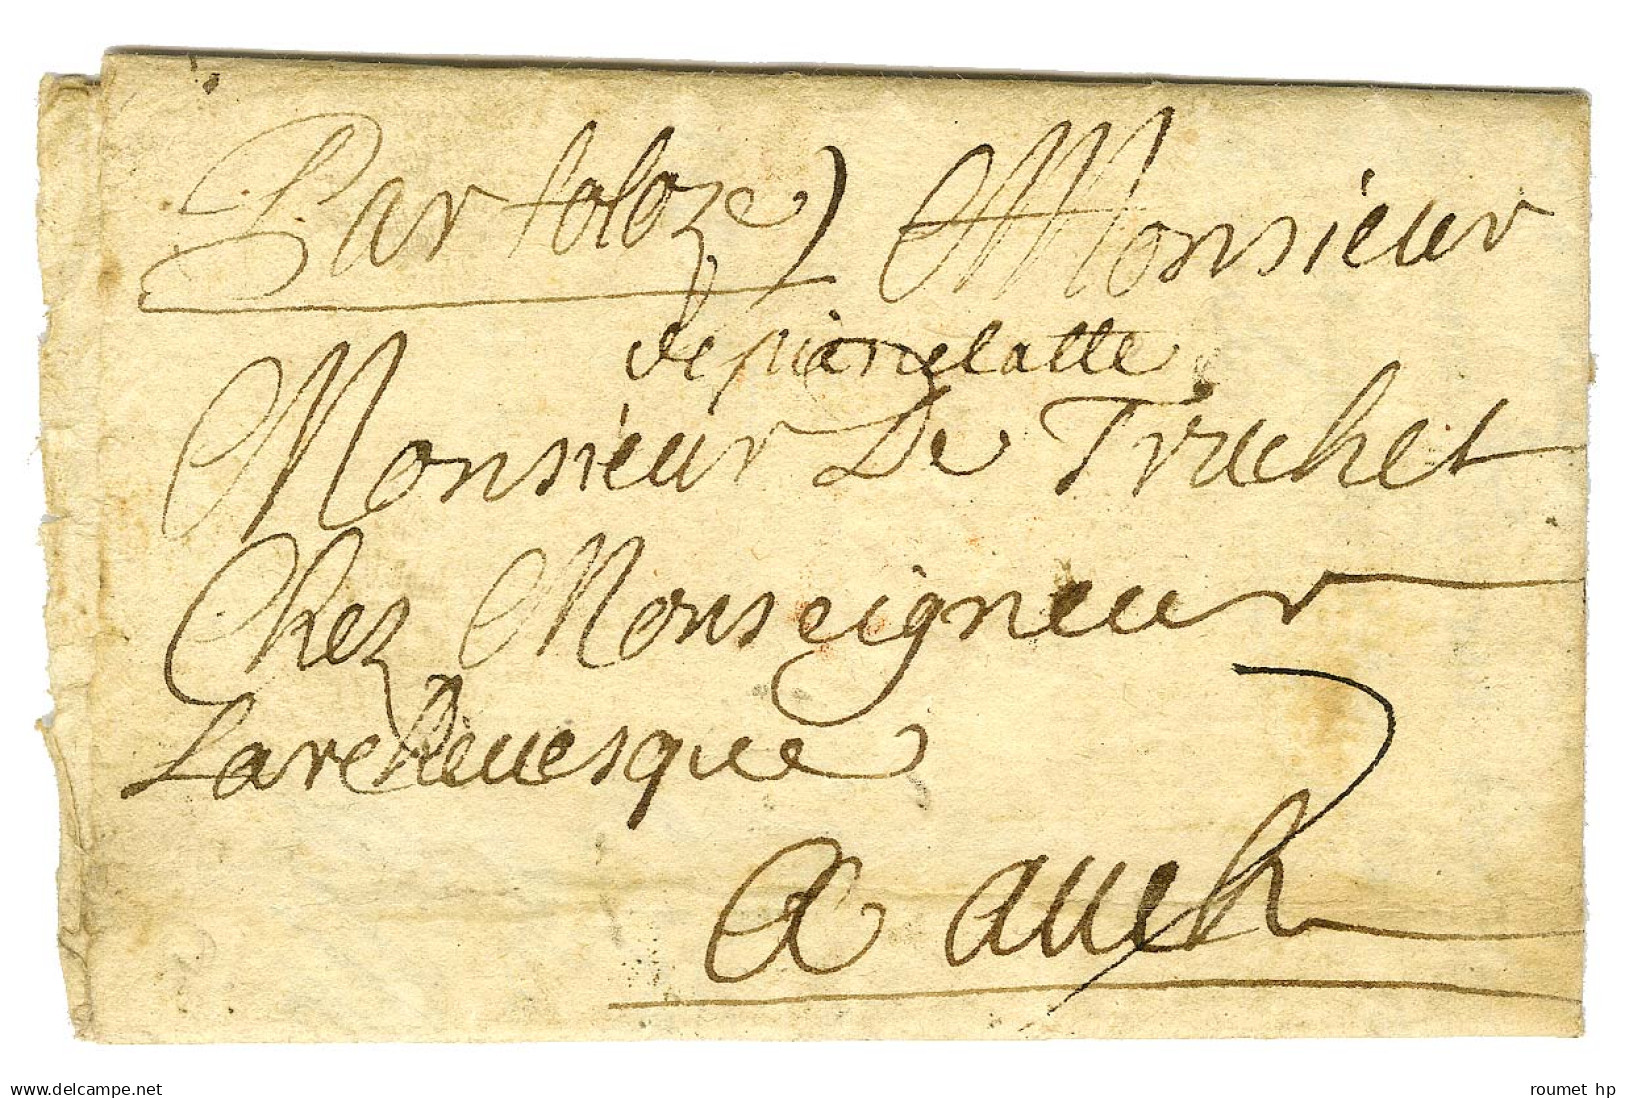 Par toloze) Monsieur
de pierrelatte
Monsieur De Truchet
Chez Monseigneur
Larcheuesque
A auch
7
www.delcampe.net
roumet hp